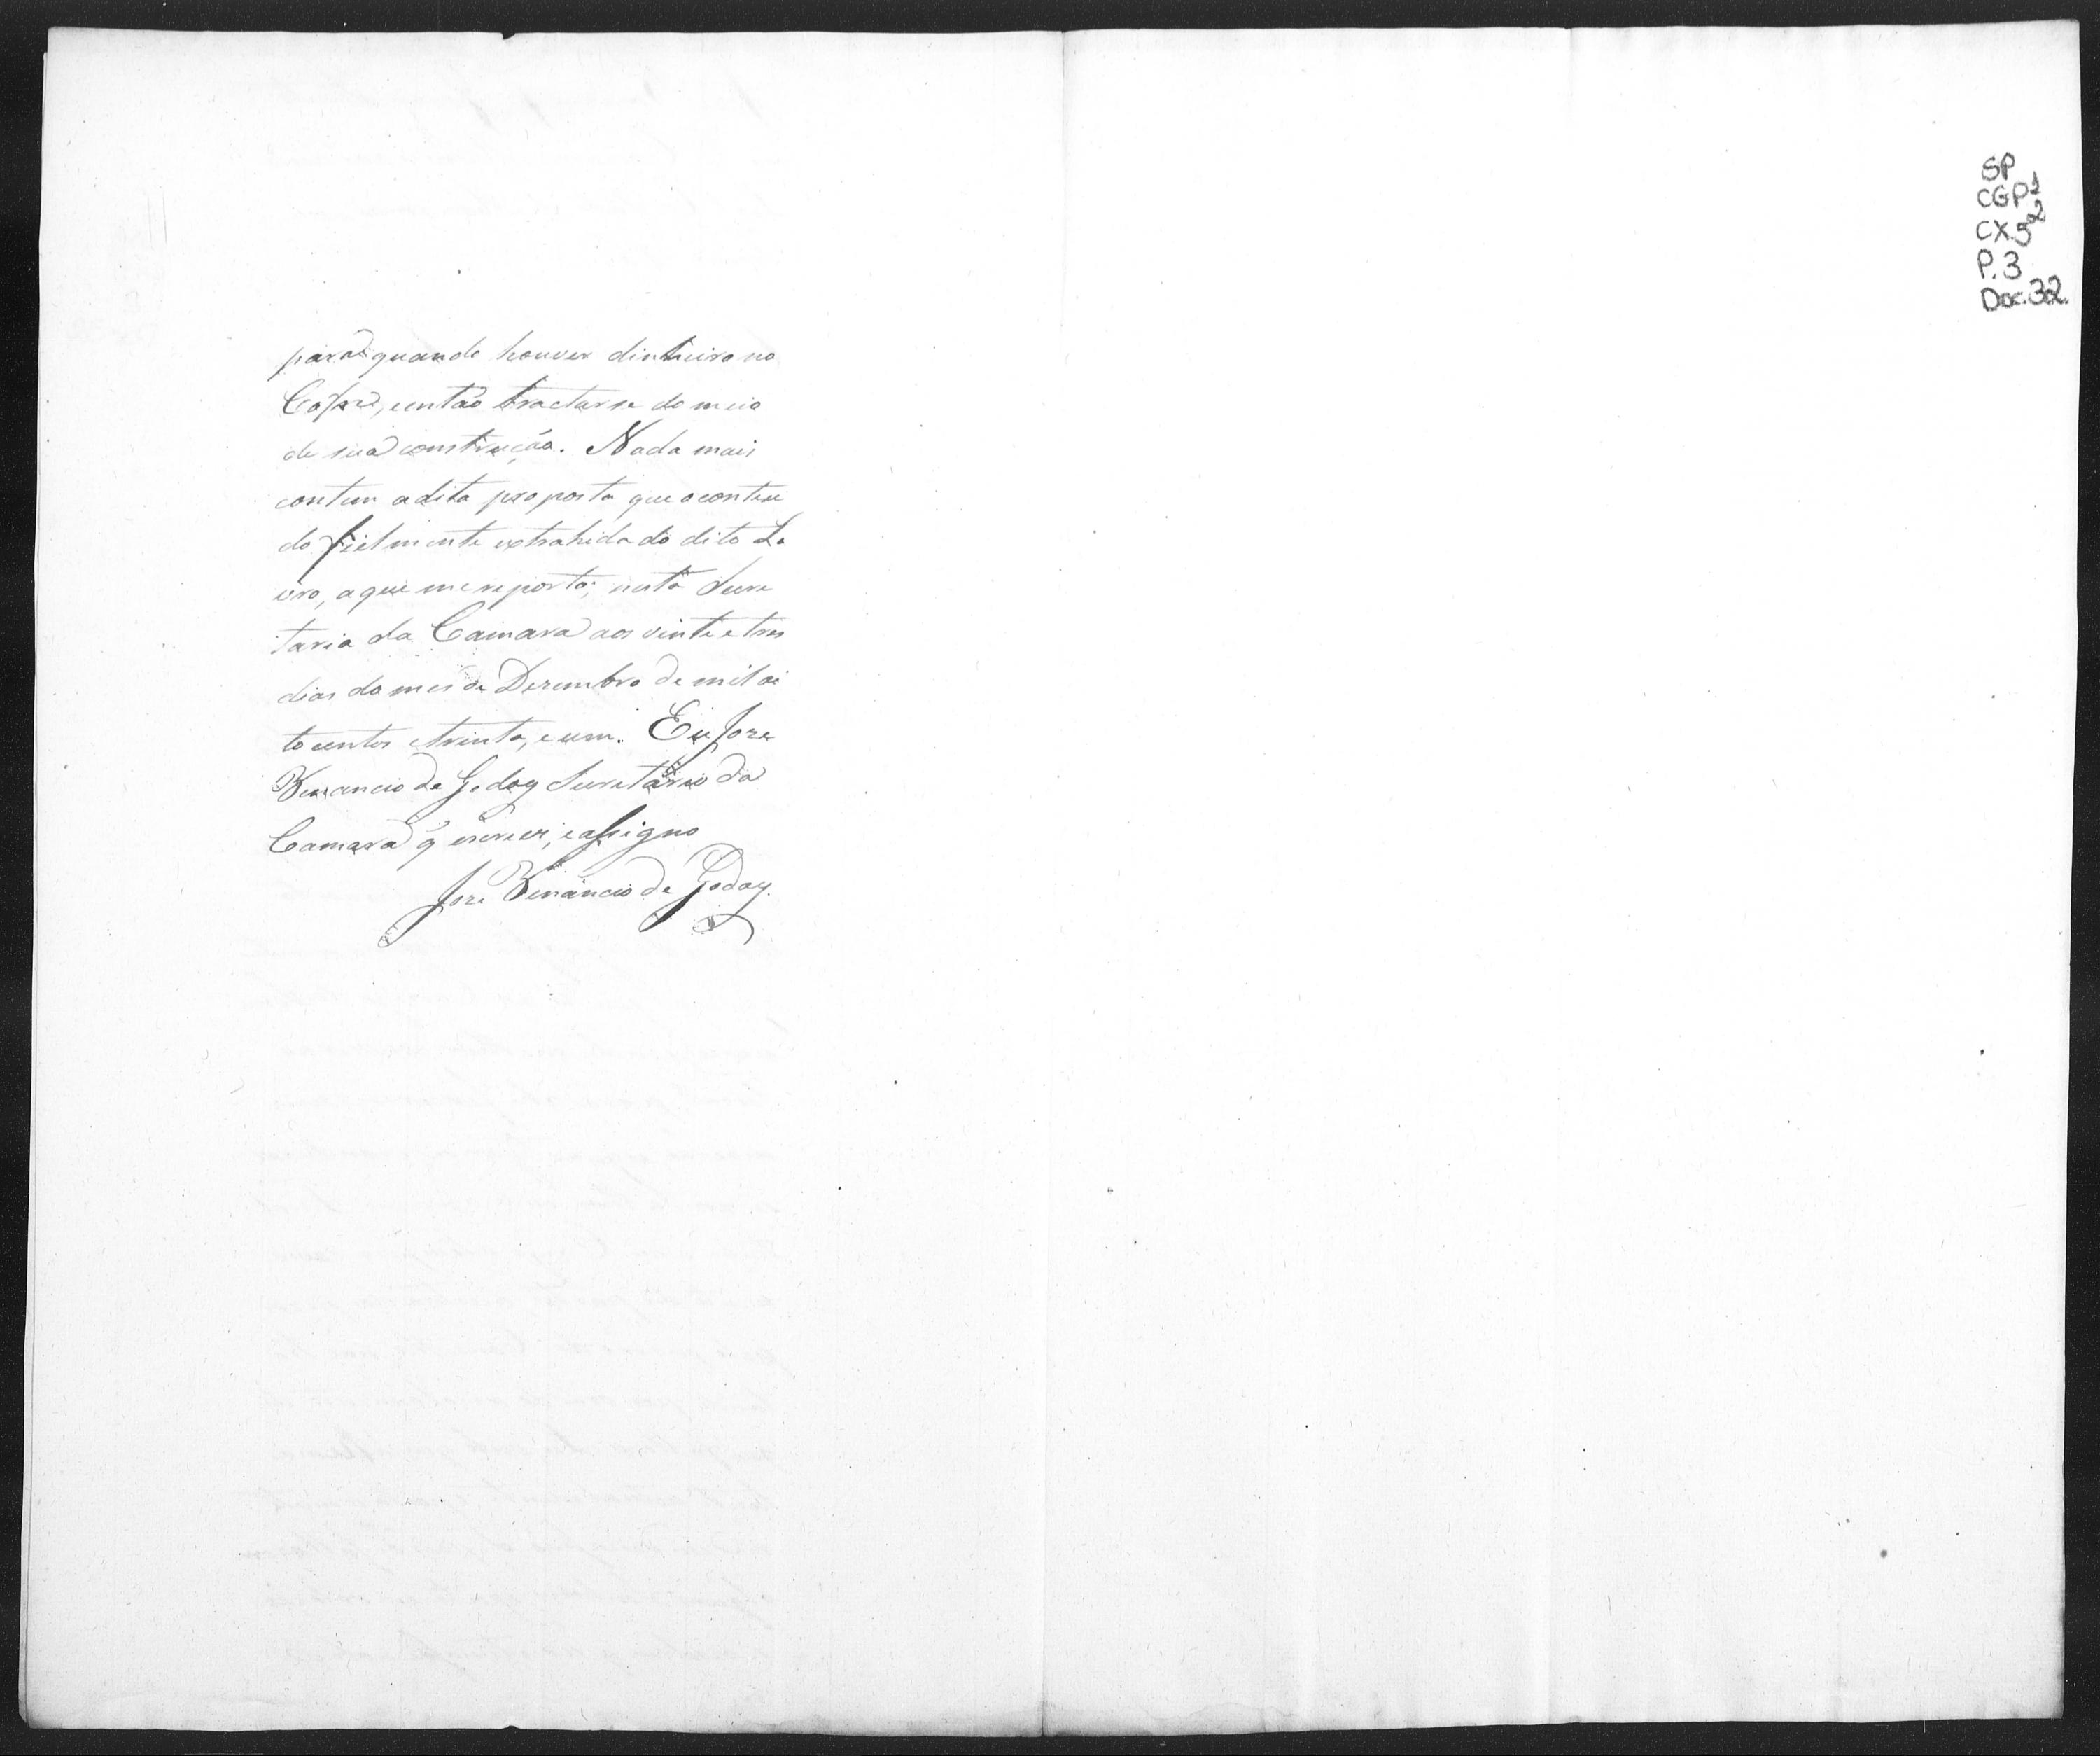 para quando houver dinheiro no
Cofre, então tractarse do meio
de sua construção. Nada mais
contem a dita proposta que o conteu
do fielmente extrahida do dito Li
vro, a que me reporto; nesta Secre
taria da Camara aos vinte e tres
dias do mes de Dezembro de mil oi
tocentos e trinta, e um. Eu Joze
Venancio de Godoy Secretario da
Camara q̃ escrevi, e assigno
Joze Venancio de Godoy.
SP
CGP1
CX.52
P.3
Doc.32